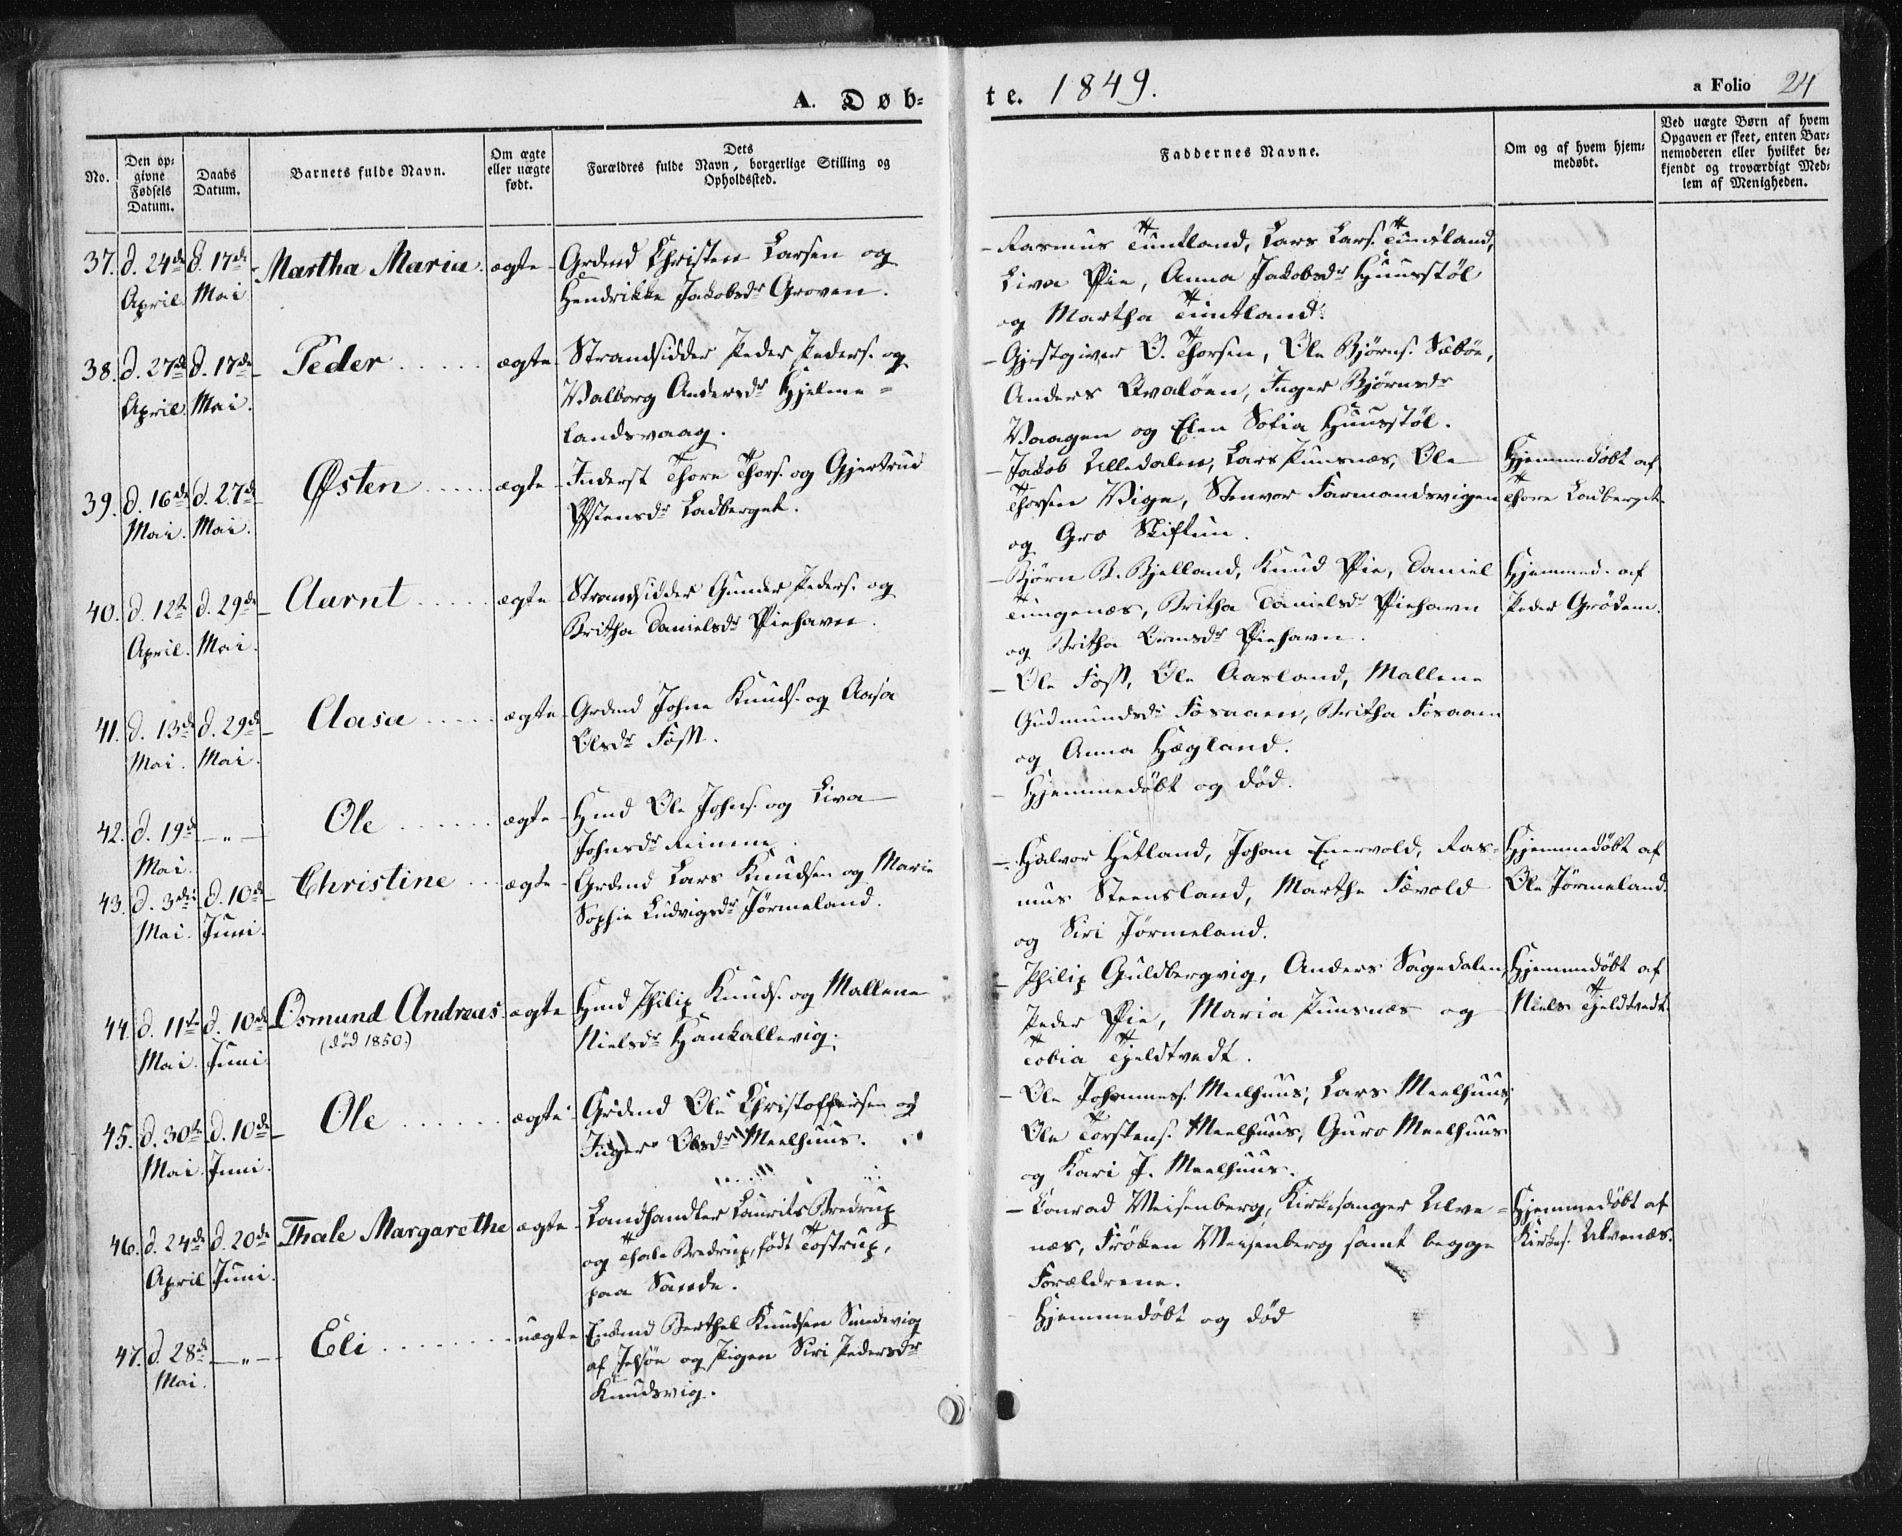 A. Døb-
te. 1849.
a Folio 24
No.
Den op-
givne
Fødsels
Datum.
Daabs
Datum.
Barnets fulde Navn.
Om ægte
eller uægte
født.
Dets
Forældres fulde Navn, borgerlige Stilling og
Opholdssted.
Faddernes Navne.
Om og af hvem hjem-
medøbt.
Ved uægte Børn af hvem
Opgaven er skeet, enten Bar-
nemoderen eller hvilket be-
kjendt og troværdigt Med-
lem af Menigheden.
37. d. 24de April d. 17de Mai Martha Maria. ægte
Grdmd Christen Larsen og
Hendrikke Jakobsdr Groven.
Rasmus Tuntland, Lars Lars. Tuntland,
Liva Øie, Anna Jakobsdr Huusstøl
og Martha Tuntland.
38. d. 27de April. d. 17de Mai. Peder ægte
Strandsidder Peder Peders. og
Valborg Andersdr Hjelme=
landsvaag.
Gjestgiver O. Thorsen, Ole Bjørns. Sæbøe,
Anders Qvaløen, Inger Bjørnsdr
Vaagen og Elen Sofia Huusstøl.
39. d. 16de Mai. d. 27de Mai. Østen ægte
Inderst Thore Thors. og Gjertrud
Østensdr Ladberget.
Jakob Ulledalen, Lars Punsnæs, Ole
Thorsen Vige, Stenvor Formandsvigen
og Gro Skiftun.
Hjemmedøbt af
Thore Ladberget.
40. d. 12te April. d. 29de Mai. Aarnt ægte
Strandsidder Gunder Peders. og
Britha Danielsdr Øiehavn.
Bjørn B. Bjelland, Knud Øie, Daniel
Tungenæs, Britha Danielsdr Øiehavn
og Britha Ormsdr Øiehavn.
Hjemmed. af
Peder Grødem.
41. d. 13de Mai. d. 29de Mai. Aasa ægte
Grdmd Johne Knuds. og Aasa
Olsdr Foss.
Ole Foss, Ole Aasland, Mallene
Gudmundsdr Fosaaen, Britha Fosaaen
og Anna Hægland.
42. d. 19de Mai. — " — Ole ægte
Hmd Ole Johns. og Liva
Johnsdr Reinene.
Hjemmedøbt og død.
43. d. 3die Mai. d. 10de Juni. Christine ægte
Grdmd Lars Knudsen og Marie
Sophie Ludvigsdr Jørmeland.
Halvor Hetland, Johan Enervold, Ras-
mus Steensland, Marthe Fævold
og Siri Jørmeland.
Hjemmedøbt af
Ole Jørmeland.
44. d. 11te Mai. d. 10de Juni Osmund Andreas ægte
(død 1850.)
Hmd Philip Knuds. og Mallene
Nielsdr Hankallevig.
Philip Guldbergvig, Anders Sagedalen,
Peder Øie, Maria Punsnæs og
Tobia Tjeldtvedt.
Hjemmedøbt af
Niels Tjeldtvedt.
45. d. 30te Mai. d. 10de Juni. Ole ægte
Grdmd Ole Christoffersen og
Inger Olsdr Meelhuus.
Ole Johannes. Meelhuus, Lars Meelhuus,
Ole Torstens. Meelhuus, Guro Meelhuus
og Kari J. Meelhuus.
46. d. 24de April d. 20de Juni. Thale Margarethe ægte
Landhandler Laurits Bredrup
og Thale Bredrup, født Tostrup,
paa Sande.
Conrad Meisenberg, Kirkesanger Ulve=
næs, Frøken Meisenberg samt begge
Forældrene.
Hjemmedøbt af
Kirkes. Ulvenæs.
47. d. 28de Mai. — " — Eli uægte
Enkmd Berthel Knudsen Sundevig
af Jelsøe og Pigen Siri Pedersdr
Knudsvig.
Hjemmedøbt og død